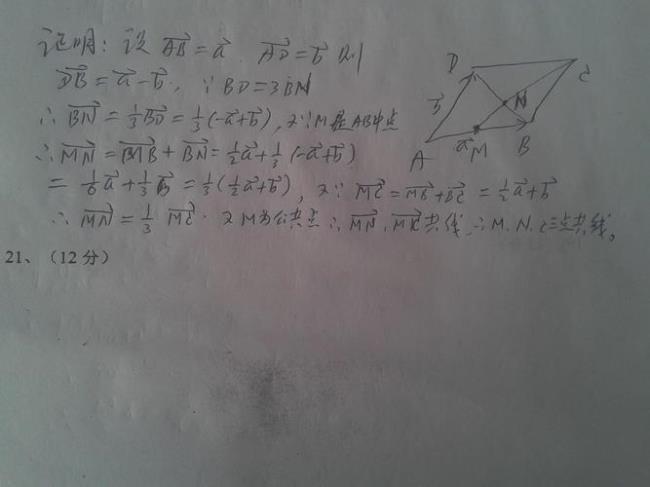 证明：设 $\overrightarrow{AB}=\vec{a}$  $\overrightarrow{AD}=\vec{b}$ 则
$\overrightarrow{DB}=\vec{a}-\vec{b}$，∵BD=3BN
∴ $\overrightarrow{BN}=\frac{1}{3}\overrightarrow{BD}=\frac{1}{3}(-\vec{a}+\vec{b})$，又∵M是AB中点
∴ $\overrightarrow{MN}=\overrightarrow{MB}+\overrightarrow{BN}=\frac{1}{2}\vec{a}+\frac{1}{3}(-\vec{a}+\vec{b})$
$=\frac{1}{6}\vec{a}+\frac{1}{3}\vec{b}=\frac{1}{3}(\frac{1}{2}\vec{a}+\vec{b})$，又∵ $\overrightarrow{MC}=\overrightarrow{MB}+\overrightarrow{BC}=\frac{1}{2}\vec{a}+\vec{b}$
∴ $\overrightarrow{MN}=\frac{1}{3}\overrightarrow{MC}$．又M为公共点∴ $\overrightarrow{MN}$、$\overrightarrow{MC}$共线，∴M、N、C三点共线。
D
C
$\vec{b}$
N
A
$\vec{a}$
M
B
21、（12分）